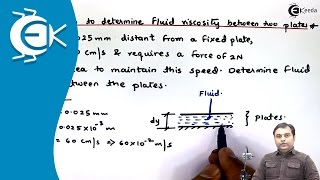 to determine Fluid viscosity between two plates
025mm distant from a fixed plate,
cm/s & requires a force of 2N
ea to maintain this speed. Determine fluid
between the plates.
Fluid.
0.025 mm
0.025×10⁻³ m
dy
} plates.
= 60 cm/s => 60×10⁻² m/s
Ekeeda